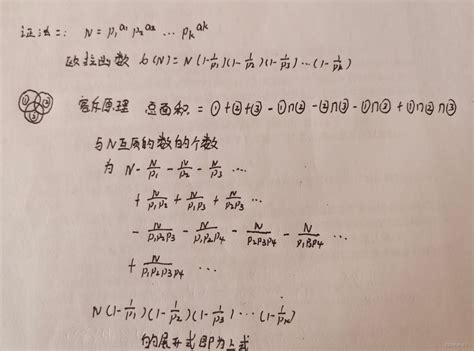 证法二: N = p₁^a₁ p₂^a₂ … pₖ^aₖ
欧拉函数 φ(N) = N(1-1/p₁)(1-1/p₂)(1-1/p₃)…(1-1/pₖ)
① ② ③ 容斥原理 总面积 = ①+②+③-①∩②-②∩③-①∩③+①∩②∩③
与N互质的数的个数
为 N - N/p₁ - N/p₂ - N/p₃ …
+ N/p₁p₂ + N/p₁p₃ + N/p₂p₃ …
- N/p₁p₂p₃ - N/p₁p₂p₄ - N/p₂p₃p₄ - N/p₁p₃p₄ …
+ N/p₁p₂p₃p₄ …
N(1-1/p₁)(1-1/p₂)(1-1/p₃)…(1-1/pₖ)
的展开式即为上式